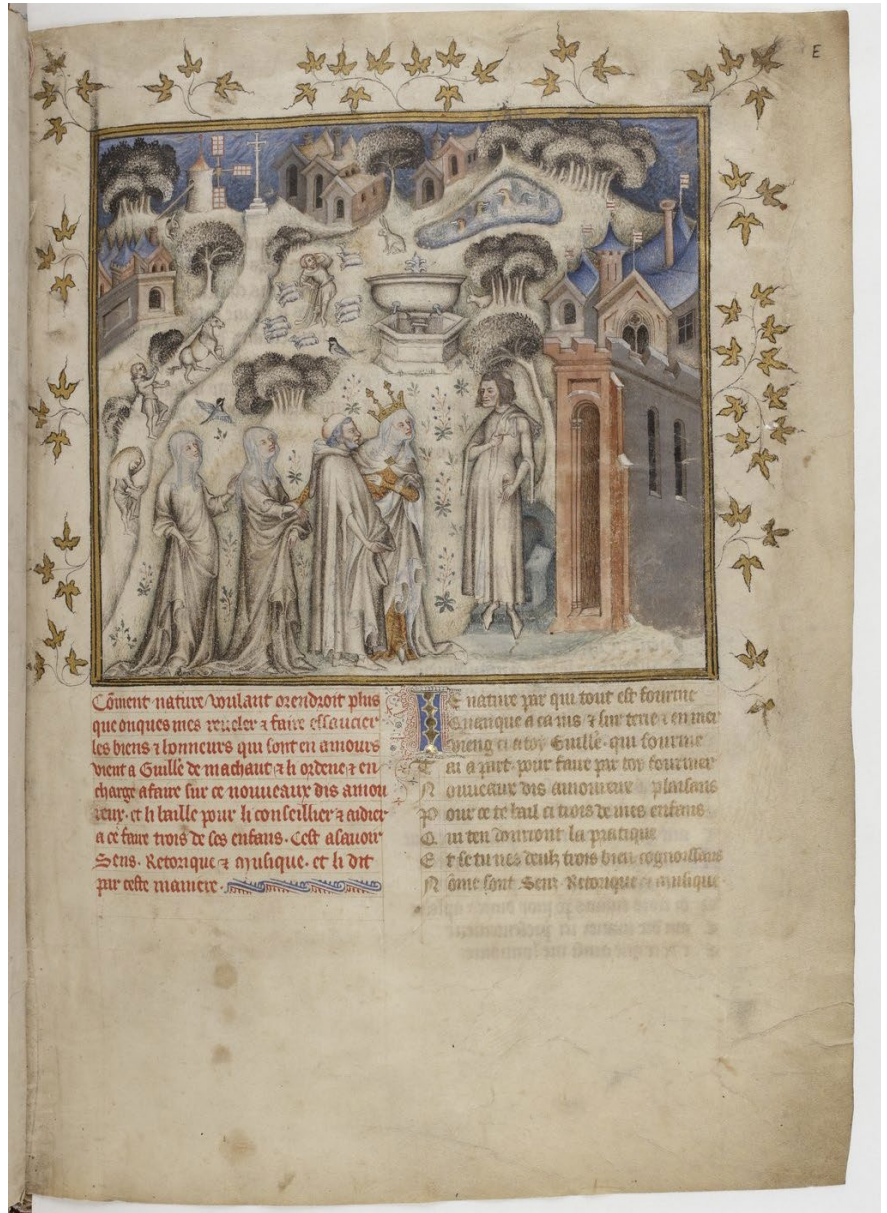 E
Cōment nature voulant orendroit plus
que onques mes reueler & faire essaucier
les biens & honneurs qui sont en amours
vient a Guille de machaut & li ordene & en
charge a faire sur ce nouueaux dis amou
reux. et li baille pour li conseillier & aidier
a ce faire trois de ses enfans. Cest asauoir
Sens. Retorique & Musique. et li dit
par ceste maniere.
Ie nature par qui tout est fourme
Quanque a ca ius & sur terre & en mer
Vieng ci a toy Guille. qui fourme
T ai a part. pour faire par toy fourmer
N ouueaux dis amoureux plaisans
P our ce te bail ci trois de mes enfans
Q ui ten donront la pratique
E t se tu nes deulz trois bien cognoissans
N ōme sont Sens Retorique & musique.